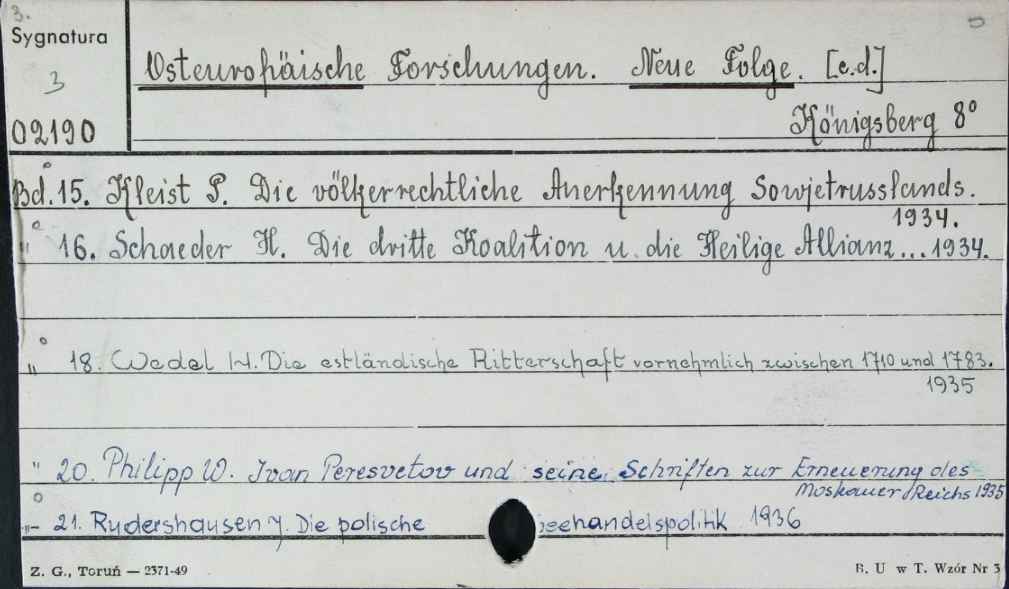 3.
Sygnatura
3
02190
Osteuropäische Forschungen. Neue Folge. [e.d.]
Königsberg 8°
Bd. 15. Kleist P. Die völkerrechtliche Anerkennung Sowjetrusslands.
1934.
" 16. Schaeder H. Die dritte Koalition u. die Heilige Allianz... 1934.
" 18. Wedel H. Die estländische Ritterschaft vornehmlich zwischen 1710 und 1783.
1935
" 20. Philipp W. Ivan Peresvetov und seine Schriften zur Erneuerung des
Moskauer Reichs 1935
" 21. Rudershausen J. Die polische seehandelspolitik 1936
Z. G., Toruń — 2371-49
B. U w T. Wzór Nr 3